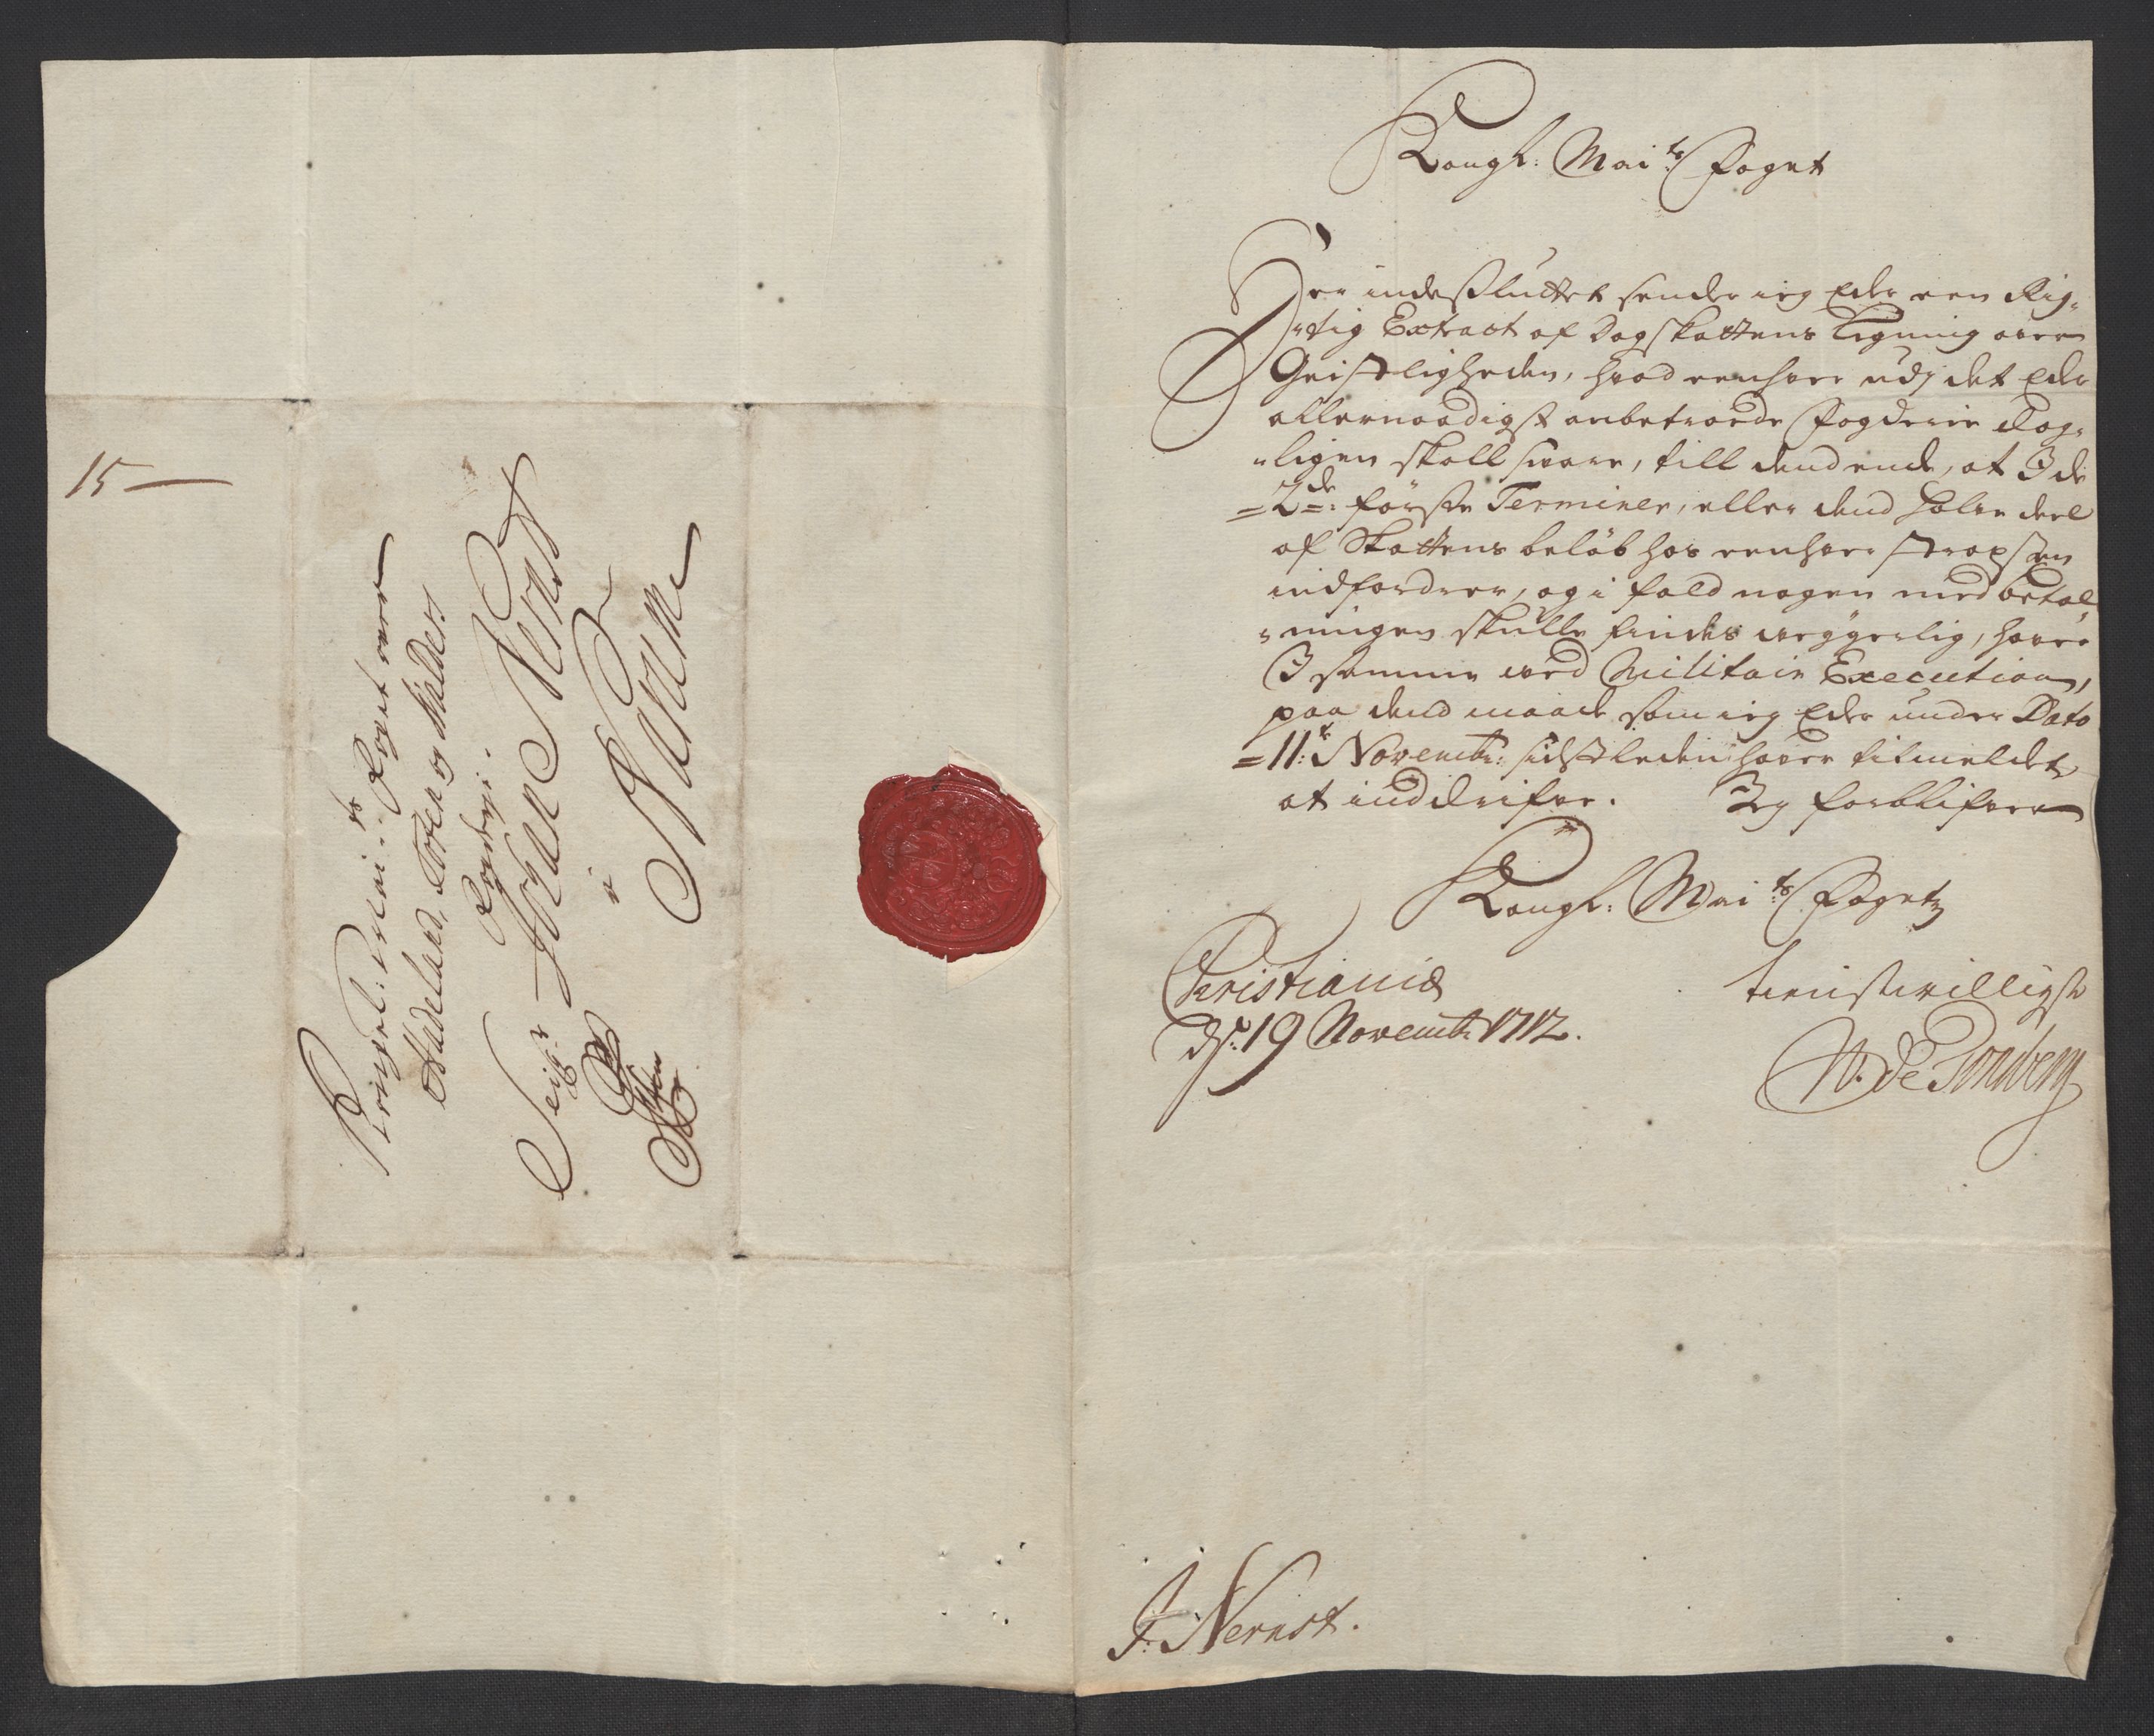 15 —
Kongel: Mai.ts Foget ofver
Hadeland, Toten og Valders
Fogderj.
Seigr Johan Nernst
i
Kongl: Mai.ts Foget
Her indesluttet sender ieg Eder een Rig-
-tig Extract af Dagskattens Ligning ofver
Geistligheden, hvad eenhver udj det Eder
allernaadigst anbetroede Fogderie dag-
-ligen skall svare, till dend ende, at I de
=2de: förste Terminer, eller dend halve deel
af Skattens beløb hos eenhver strax
indfordrer, og i fald nogen med betal-
-ningen skulle findes veygerlig, haver
I samme ved Militair Execution,
paa dend maade som ieg Eder under Dato
=11te Novembr: sidstleden haver tilmeldet,
at inddrifve. Jeg forblifver
Kongl: Mai.ts Fogetz
Christiania
ds: 19 Novembr 1712.
tienstvilligste
W. de Tonsberg
J: Nernst.